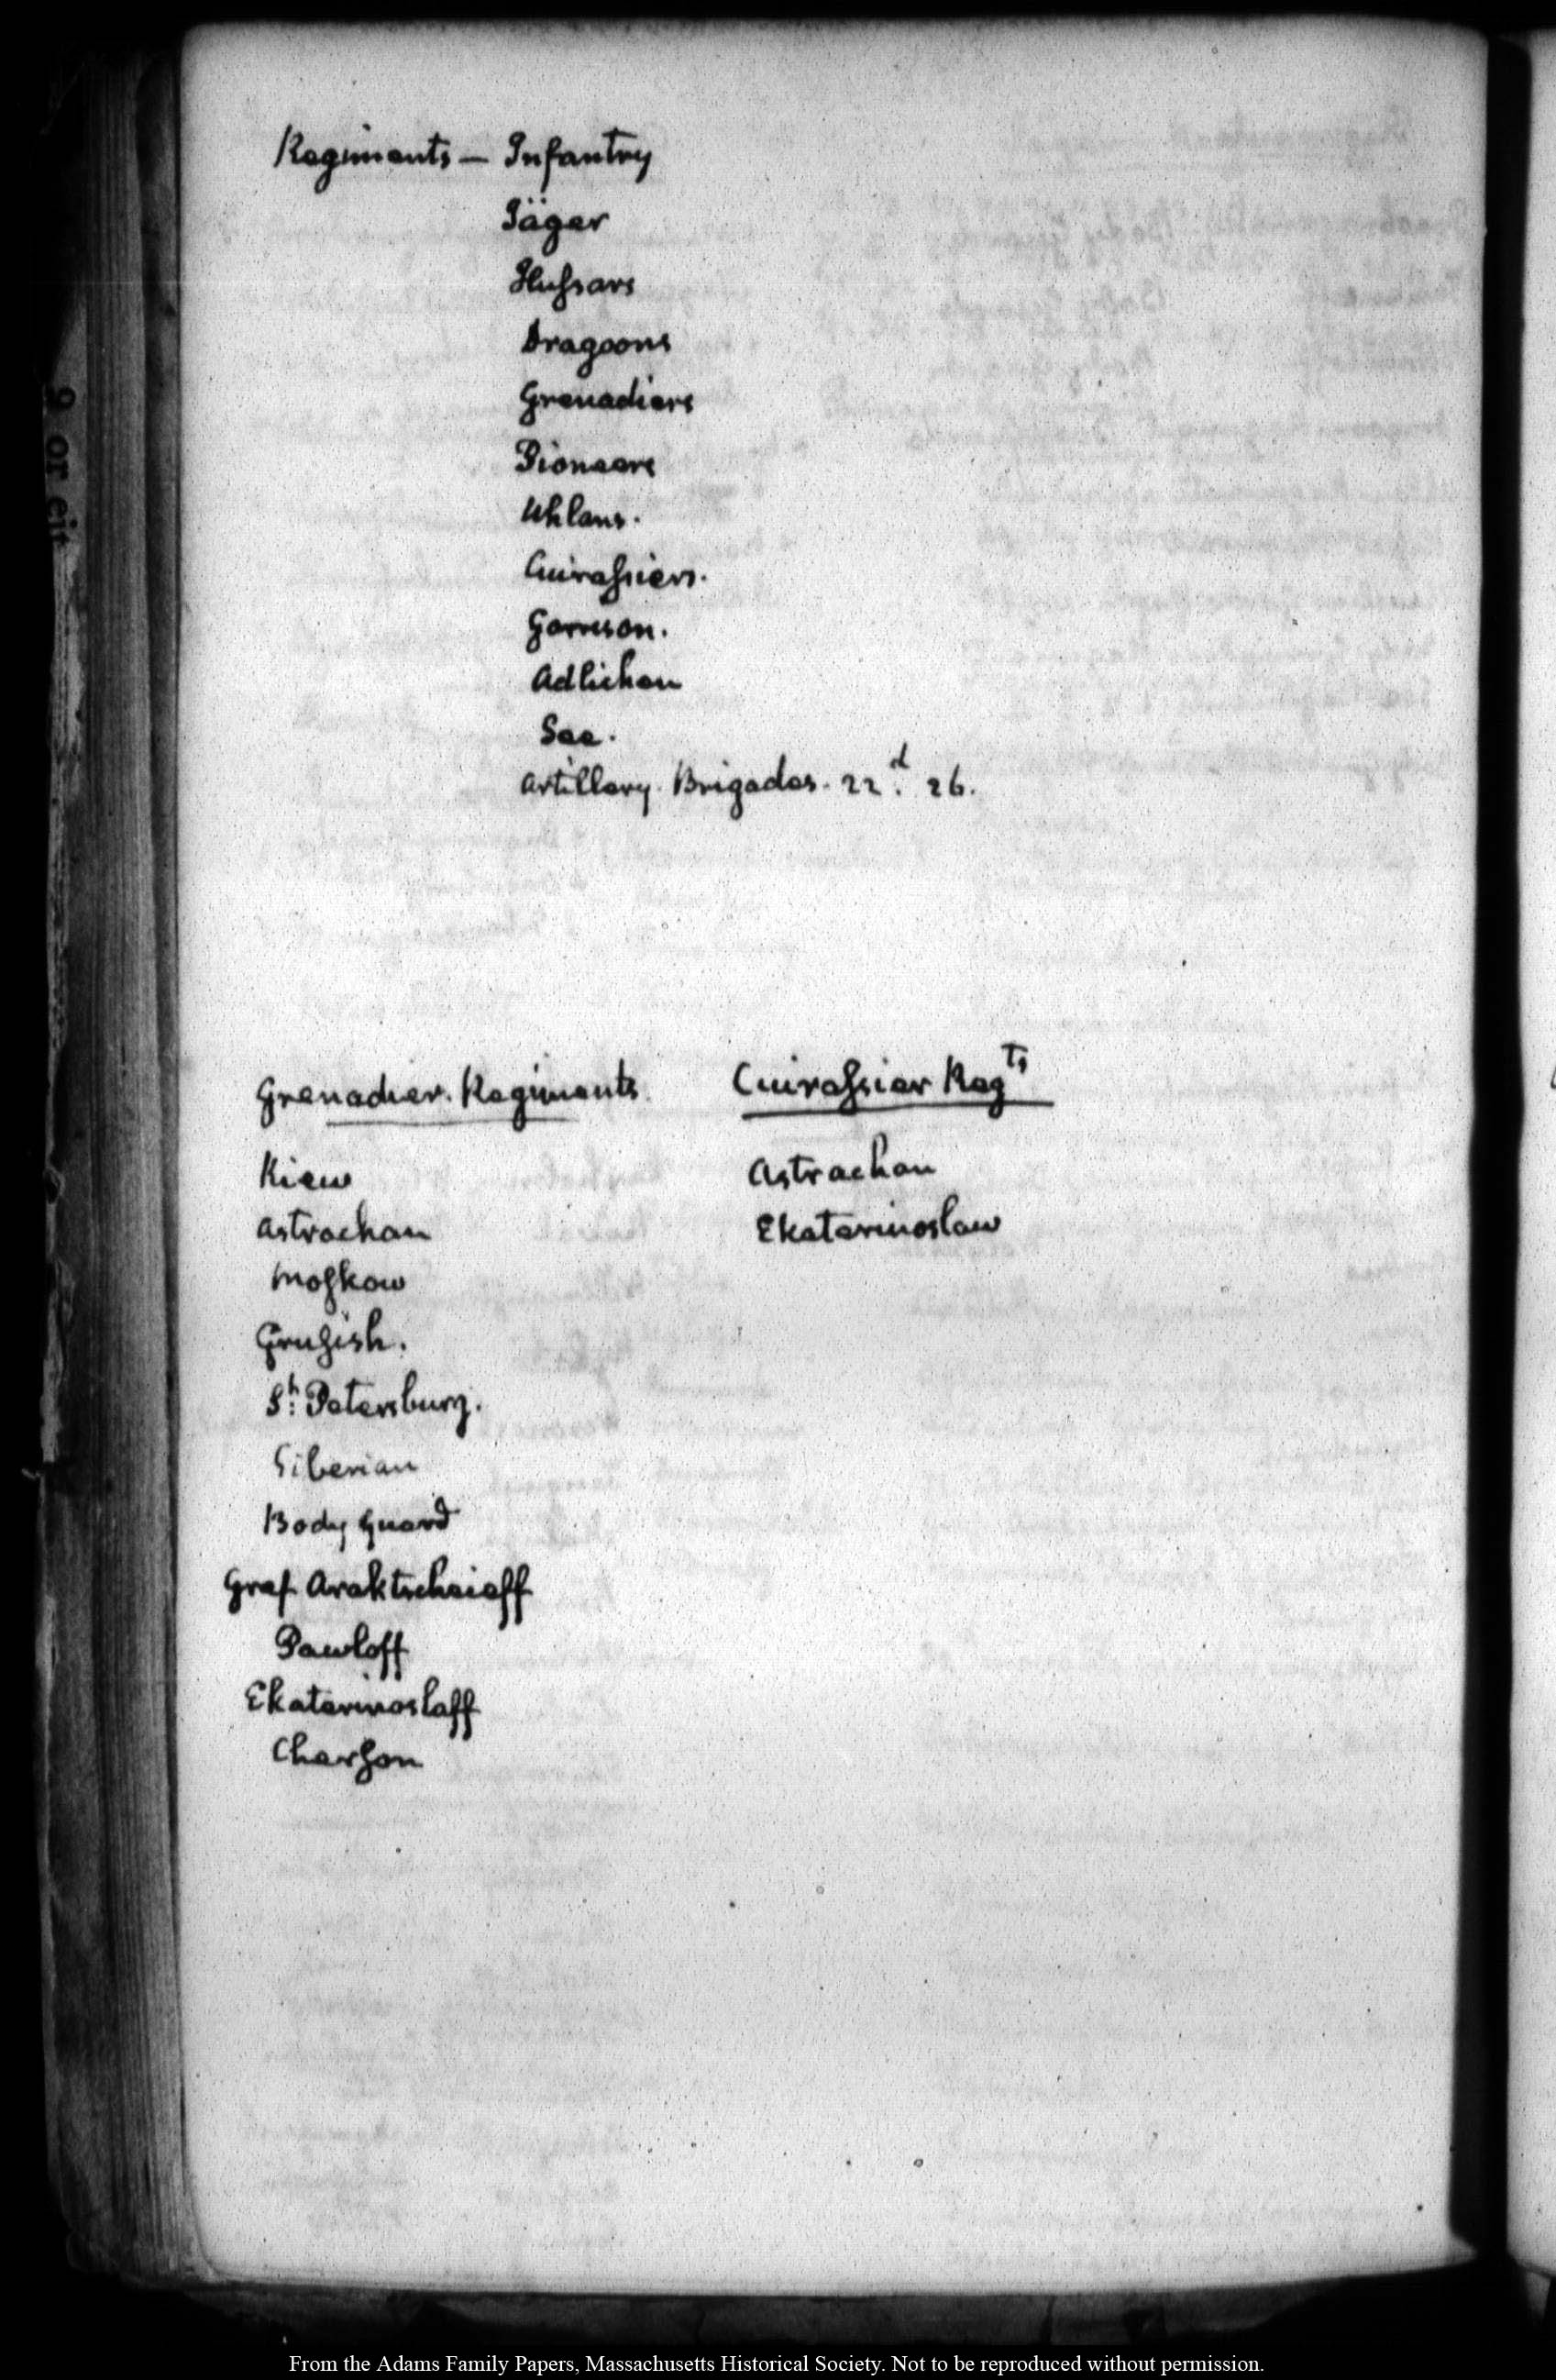 Regiments — Infantry
Jäger
Hussars
Dragoons
Grenadiers
Pioneers
Uhlans.
Cuirassiers.
Garrison.
Adlichen
See.
Artillery. Brigades. 22.d 26.
Grenadier. Regiments
Kiew
Astrachan
Moskow
Grusish.
St. Petersburg.
Siberian
Body Guard
Graf Araktscheieff
Pawloff
Ekaterinoslaff
Cherson
Cuirassier Regts
Astrachan
Ekaterinoslaw
From the Adams Family Papers, Massachusetts Historical Society. Not to be reproduced without permission.